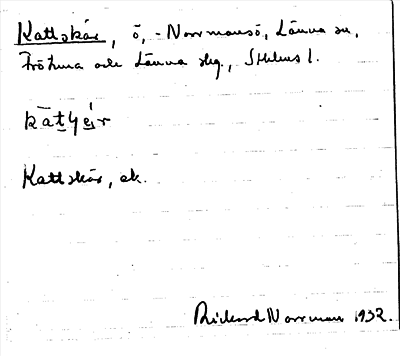 Kattskär, ö, - Norrmansö, Länna sn,
Frötuna och Länna skg., Sthlms l.
Kattskär, ek.
Rickard Norrman 1932.